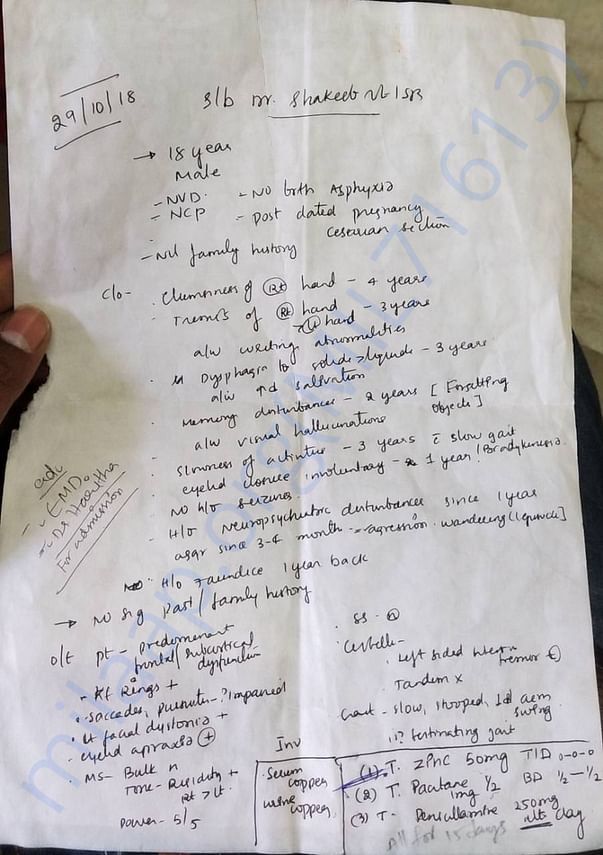 29/10/18
S/b Dr. Shakeeb
→ 18 year
Male
- NVD. - No birth Asphyxia
- NCP - post dated pregnancy
ceserian section
- Nil family history
C/o - . Clumsiness of (Rt) hand - 4 years
. Tremors of (Rt) hand - 3 years
> (Lt) hand
a/w writing abnormalities
. Dysphagia to solids > liquids - 3 years
a/w ↑d salivation
. Memory disturbances - 2 years [Forgetting
objects]
a/w visual hallucinations
. Slowness of activities - 3 years c̄ slow gait
. eyelid closure involuntary - 1 year / Bradykinesia.
. No H/o seizures.
- H/o Neuropsychiatric disturbances since 1 year
aggr since 3-4 month - aggression. wandering [1 episode]
H/o Jaundice 1 year back
→ No sig Past / family history
adv
- EMD.
- Dr. Haritha
For admission
O/E Pt - Predominant
frontal / subcortical
dysfunction
. KF Rings +
. saccades, pursuits - ? impaired
. Lt facial dystonia +
. eyelid apraxia (+)
. MS - Bulk n
Tone - Rigidity +
Rt > Lt.
Power - 5/5
. SS - (n)
. Cerebell -
. Left sided
tremor
. Tandem x
Gait - slow, stooped, ↓d arm
swing
? festinating gait
Inv
. Serum
copper
urine
copper
(1) T. Zinc 50mg TID 0-0-0
(2) T. Pacitane 1/2 BD 1/2 - 1/2
1mg
(3) T. Penicillamine 250mg
alt day
All for 15 days
milaap.org (MIL 71613)